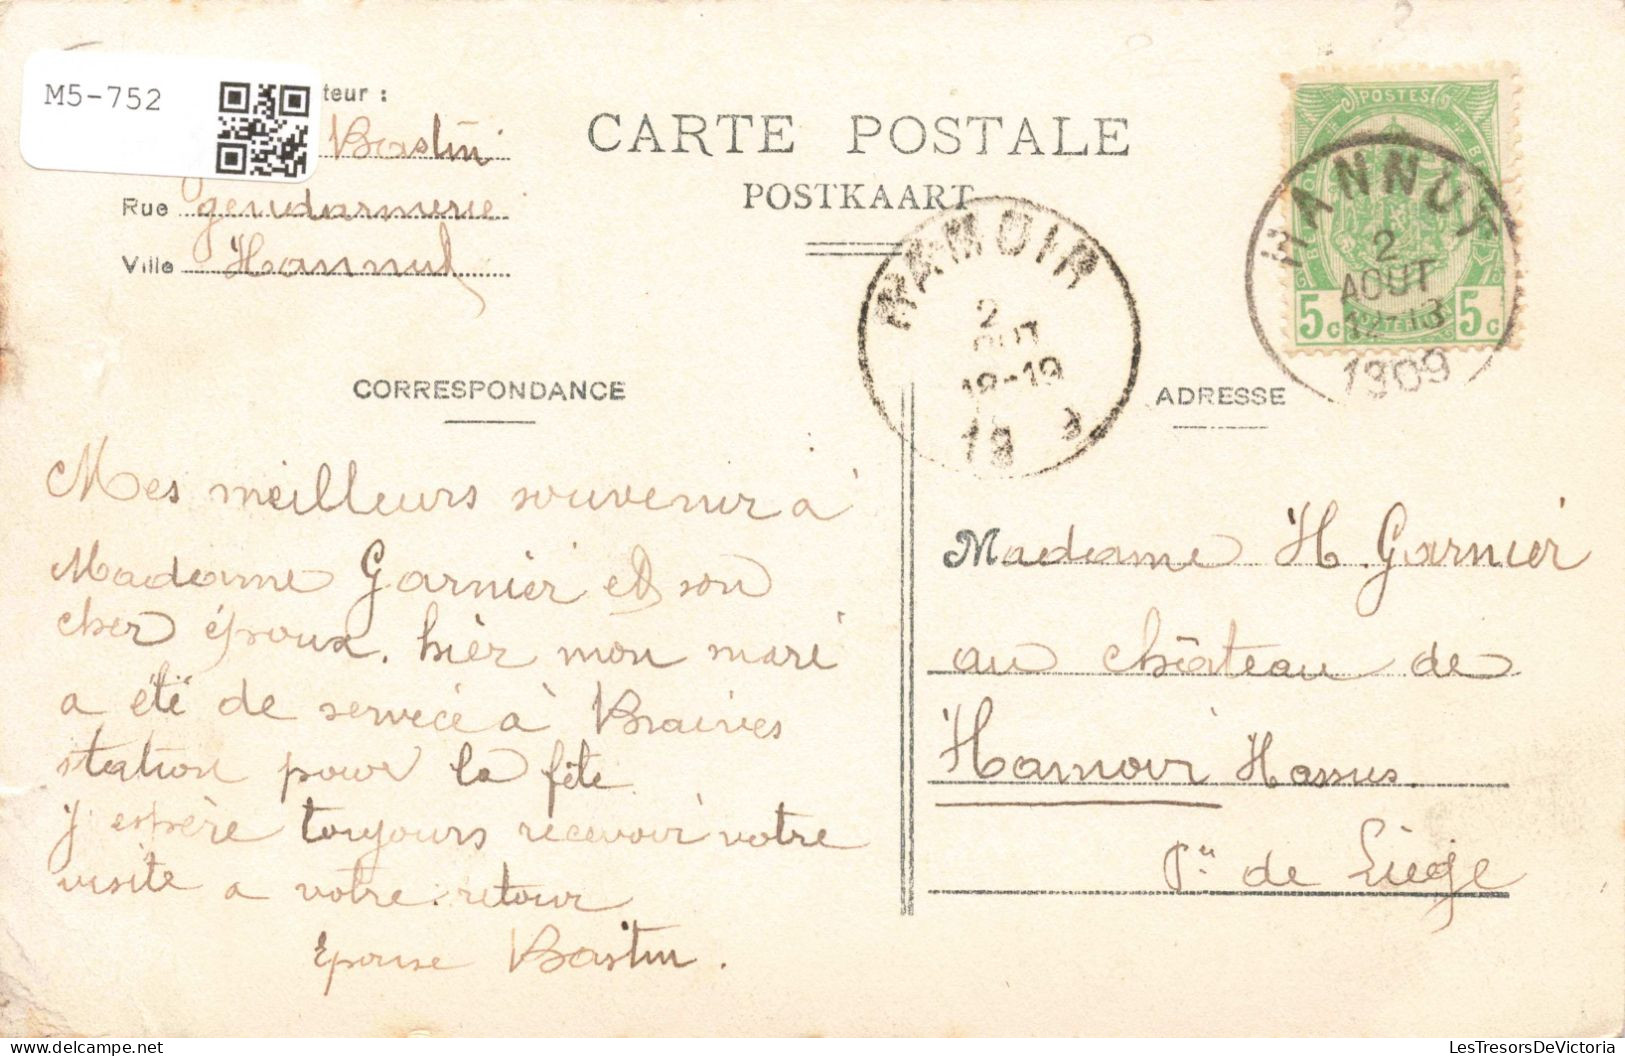 M5-752
teur :
Bastin
Rue gendarmerie
Ville Hannut
CARTE POSTALE
POSTKAART
POSTES
5c 5c
HANNUT
2
AOUT
12-13
1909
HAMOIR
2
OUT
18-19
19 9
CORRESPONDANCE
ADRESSE
Mes meilleurs souvenir à
Madame Garnier et son
cher époux. hièr mon mari
a été de service à Braives
station pour la fête
j espère toujours recevoir votre
visite a votre retour
Epouse Bastin.
Madame H. Garnier
au château de
Hamoir Hassus.
Pce de Liège
LesTresorsDeVictoria
delcampe.net